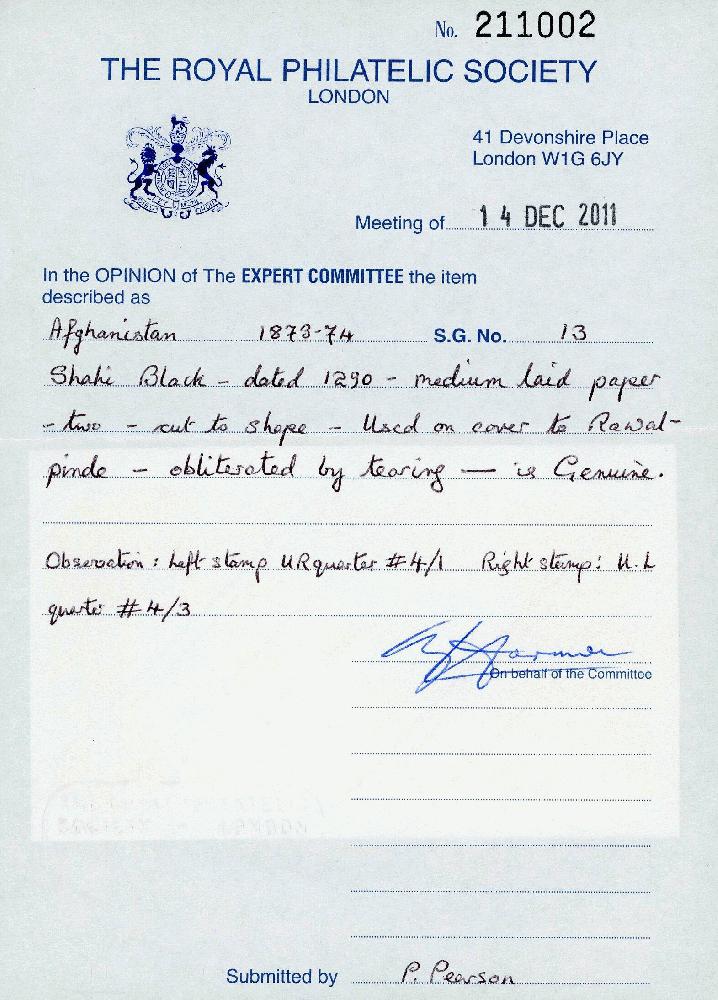 No. 211002
THE ROYAL PHILATELIC SOCIETY
LONDON
41 Devonshire Place
London W1G 6JY
Meeting of 14 DEC 2011
In the OPINION of The EXPERT COMMITTEE the item
described as
Afghanistan 1873-74 S.G. No. 13
Shahi Black - dated 1290 - medium laid paper
- two - cut to shape - Used on cover to Rawal-
pinde - obliterated by tearing - is Genuine.
Observation: Left stamp UR quarter #4/1 Right stamp: U.L
quarter #4/3
On behalf of the Committee
Submitted by P. Pearson